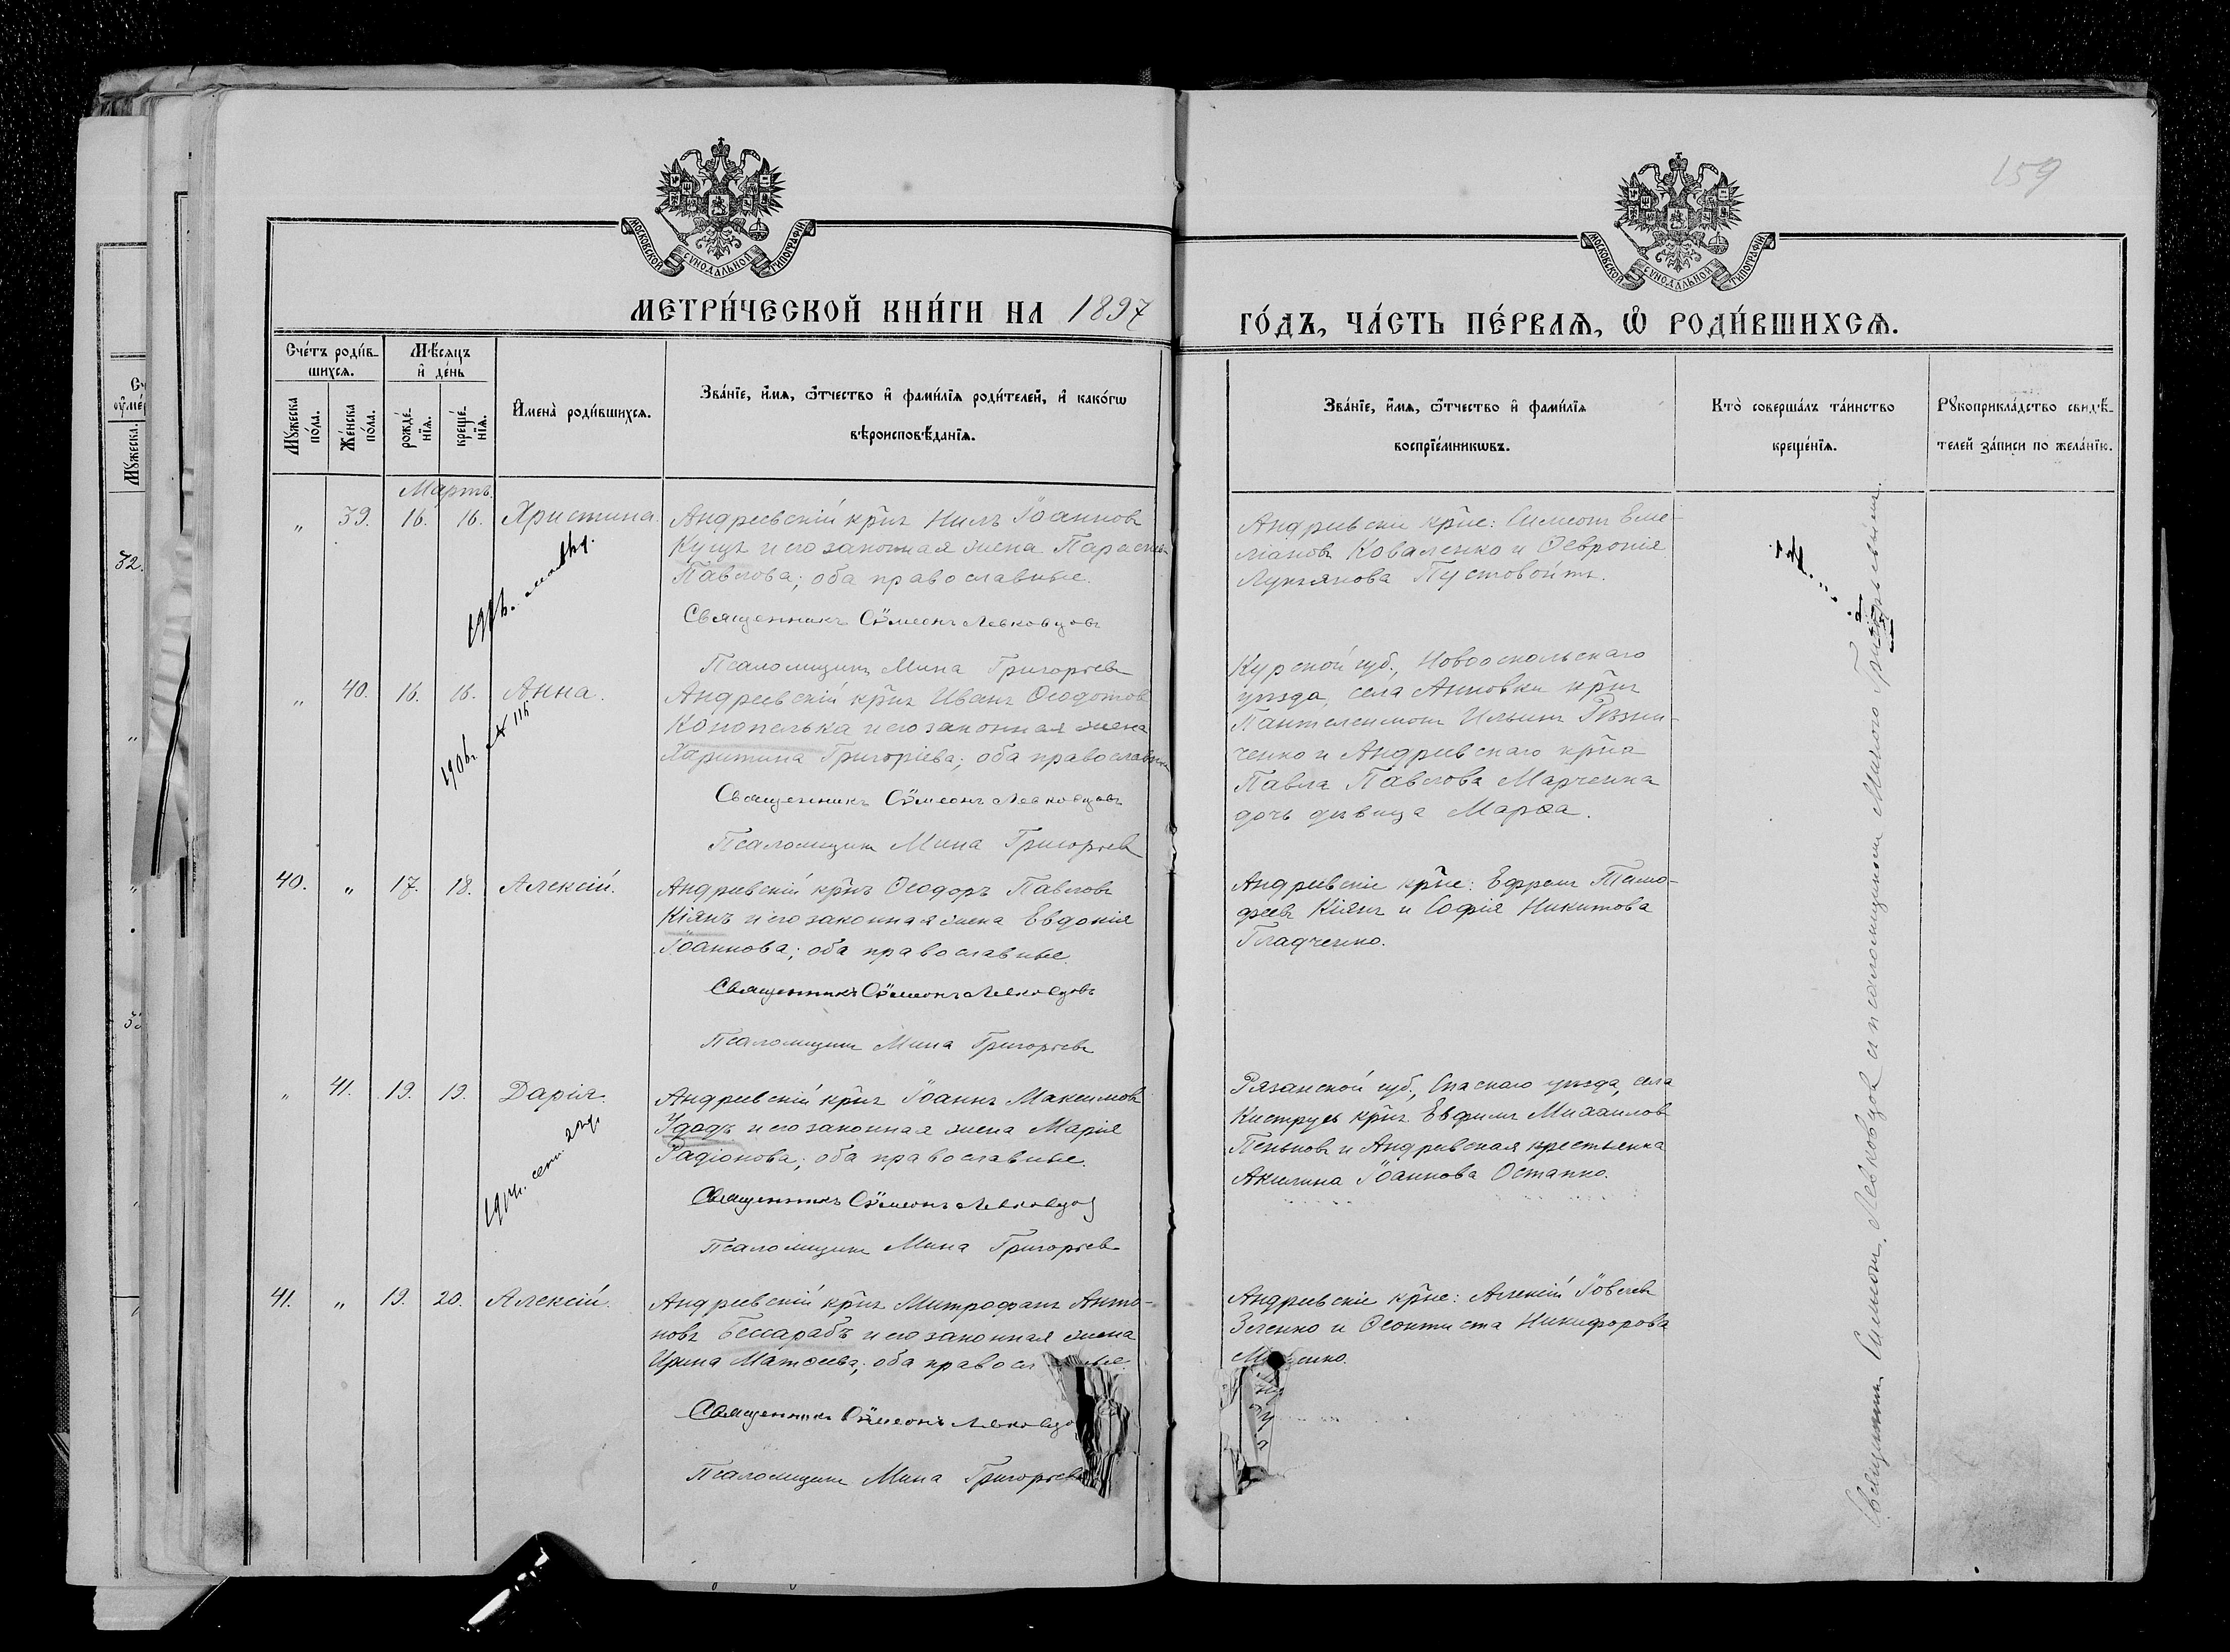 159
МОСКОВСКОЙ СѴНОДАЛЬНОЙ ТИПОГРАФІИ
МОСКОВСКОЙ СѴНОДАЛЬНОЙ ТИПОГРАФІИ
МЕТРИ́ЧЕСКОЙ КНИ́ГИ НА 1897
ГО́ДЪ, ЧА́СТЬ ПЕ́РВАѦ, Ѡ҆ РОДИ́ВШИХСѦ.
Сче́тъ роди́в-
шихсѧ.
Мꙋ́жеска
по́ла.
Же́нска
по́ла.
Мѣ́сѧцъ
и҆ де́нь
рожде́-
нїѧ.
креще́-
нїѧ.
И҆мена̀ роди́вшихсѧ.
Зва́нїе, и҆́мѧ, ѻ҆́тчество и҆ фами́лїѧ роди́телей, и҆ како́гѡ
вѣроисповѣ́данїѧ.
Зва́нїе, и҆́мѧ, ѻ҆́тчество и҆ фами́лїѧ
воспрїе́мникѡвъ.
Кто̀ соверша́лъ та́инство
креще́нїѧ.
Рꙋкоприкла́дство свидѣ́-
телей за́писи по жела́нїю.
Мартъ.
„ 39. 16. 16. Христина.
Андреевскій кр̃нъ Нилъ Іоанновъ
Куцъ и его законная жена Параскева
Павлова; оба православные.
Священникъ Сѵмеонъ Левковцовъ
Псаломщикъ Мина Григорьевъ
Андреевскіе кр̃не: Симеонъ Еме-
ліановъ Коваленко и Ѳевронія
Лукьянова Пустовойтъ.
„ 40. 16. 18. Анна.
Андреевскій кр̃нъ Иванъ Ѳеодотовъ
Конопелька и его законная жена
Харитина Григоріева; оба православные
Священникъ Сѵмеонъ Левковцовъ
Псаломщикъ Мина Григорьевъ
Курской губ., Новооскольскаго
уѣзда, села Анновки кр̃нъ
Пантелеимонъ Ильинъ Рѣзни-
ченко и Андреевскаго кр̃на
Павла Павлова Марченка
дочь дѣвица Марѳа.
40. „ 17. 18. Алексій.
Андреевскій кр̃нъ Ѳеодоръ Павловъ
Кіянъ и его законная жена Евдокія
Іоаннова; оба православные.
Священникъ Сѵмеонъ Левковцовъ
Псаломщикъ Мина Григорьевъ
Андреевскіе кр̃не: Ефремъ Тимо-
феевъ Кіянъ и Софія Никитова
Гладченко.
„ 41. 19. 19. Дарія.
Андреевскій кр̃нъ Іоаннъ Максимовъ
Удодъ и его законная жена Марія
Радіонова; оба православные.
Священникъ Сѵмеонъ Левковцов
Псаломщикъ Мина Григорьевъ
Рязанской губ., Спаскаго уѣзда, села
Киструсъ кр̃нъ Евфимъ Михаиловъ
Пеньковъ и Андреевская крестьянка
Акилина Іоаннова Остапко.
41. „ 19. 20. Алексій.
Андреевскій кр̃нъ Митрофанъ Анто-
новъ Бессарабъ и его законная жена
Ирина Матѳеева; оба правосл
Священникъ Сѵмеонъ Левковцо
Псаломщикъ Мина Григорьевъ
Андреевскіе кр̃не: Алексій Іовлевъ
Зеленко и Ѳеоктиста Никифорова
Священникъ Симеонъ Левковцовъ и псаломщикъ Мина Григорьевъ
32.